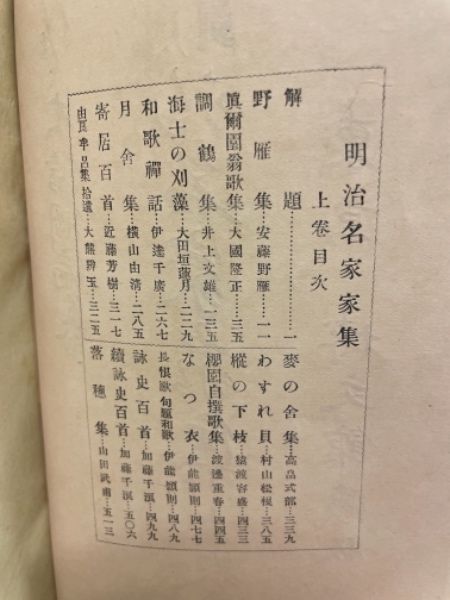 明治名家家集
上卷目次
解題…………一
野雁集…安藤野雁…一一
眞爾園翁歌集…大國隆正…三五
調鶴集…井上文雄…一三五
海士の刈藻…大田垣蓮月…二二九
和歌禪話…伊達千廣…二六七
月舍集…橫山由淸…二八五
寄居百首…近藤芳樹…三一七
大熊辨玉…三二五
麥の舍集…高畠式部…三三九
わすれ貝…村山松根…三八五
樅の下枝…猿渡容盛…四三三
樱園自撰歌集…渡邊重春…四四五
なつ衣…伊能穎則…四七七
長恨歌句題和歌…伊能穎則…四八九
詠史百首…加藤千浪…四九九
續詠史百首…加藤千浪…五〇六
落穗集…山田武甫…五一三